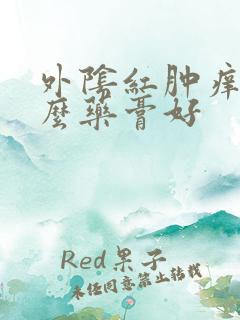 外陰紅肿痒
麼药膏好
Red果子
未经同意禁止转载